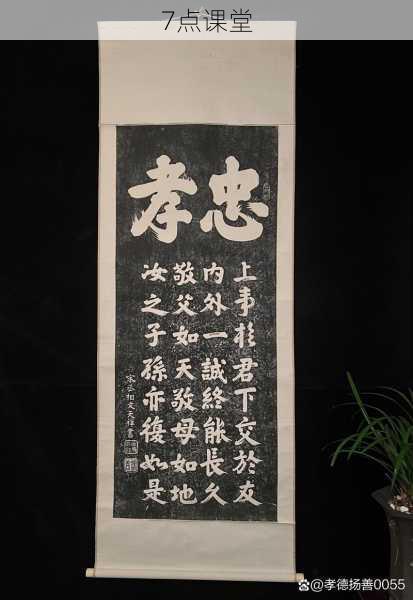 7点课堂
忠孝
上事於君下交於友
内外一誠終能長久
敬父如天敬母如地
汝之子孫亦復如是
宋丞相文天祥書
@孝德扬善0055